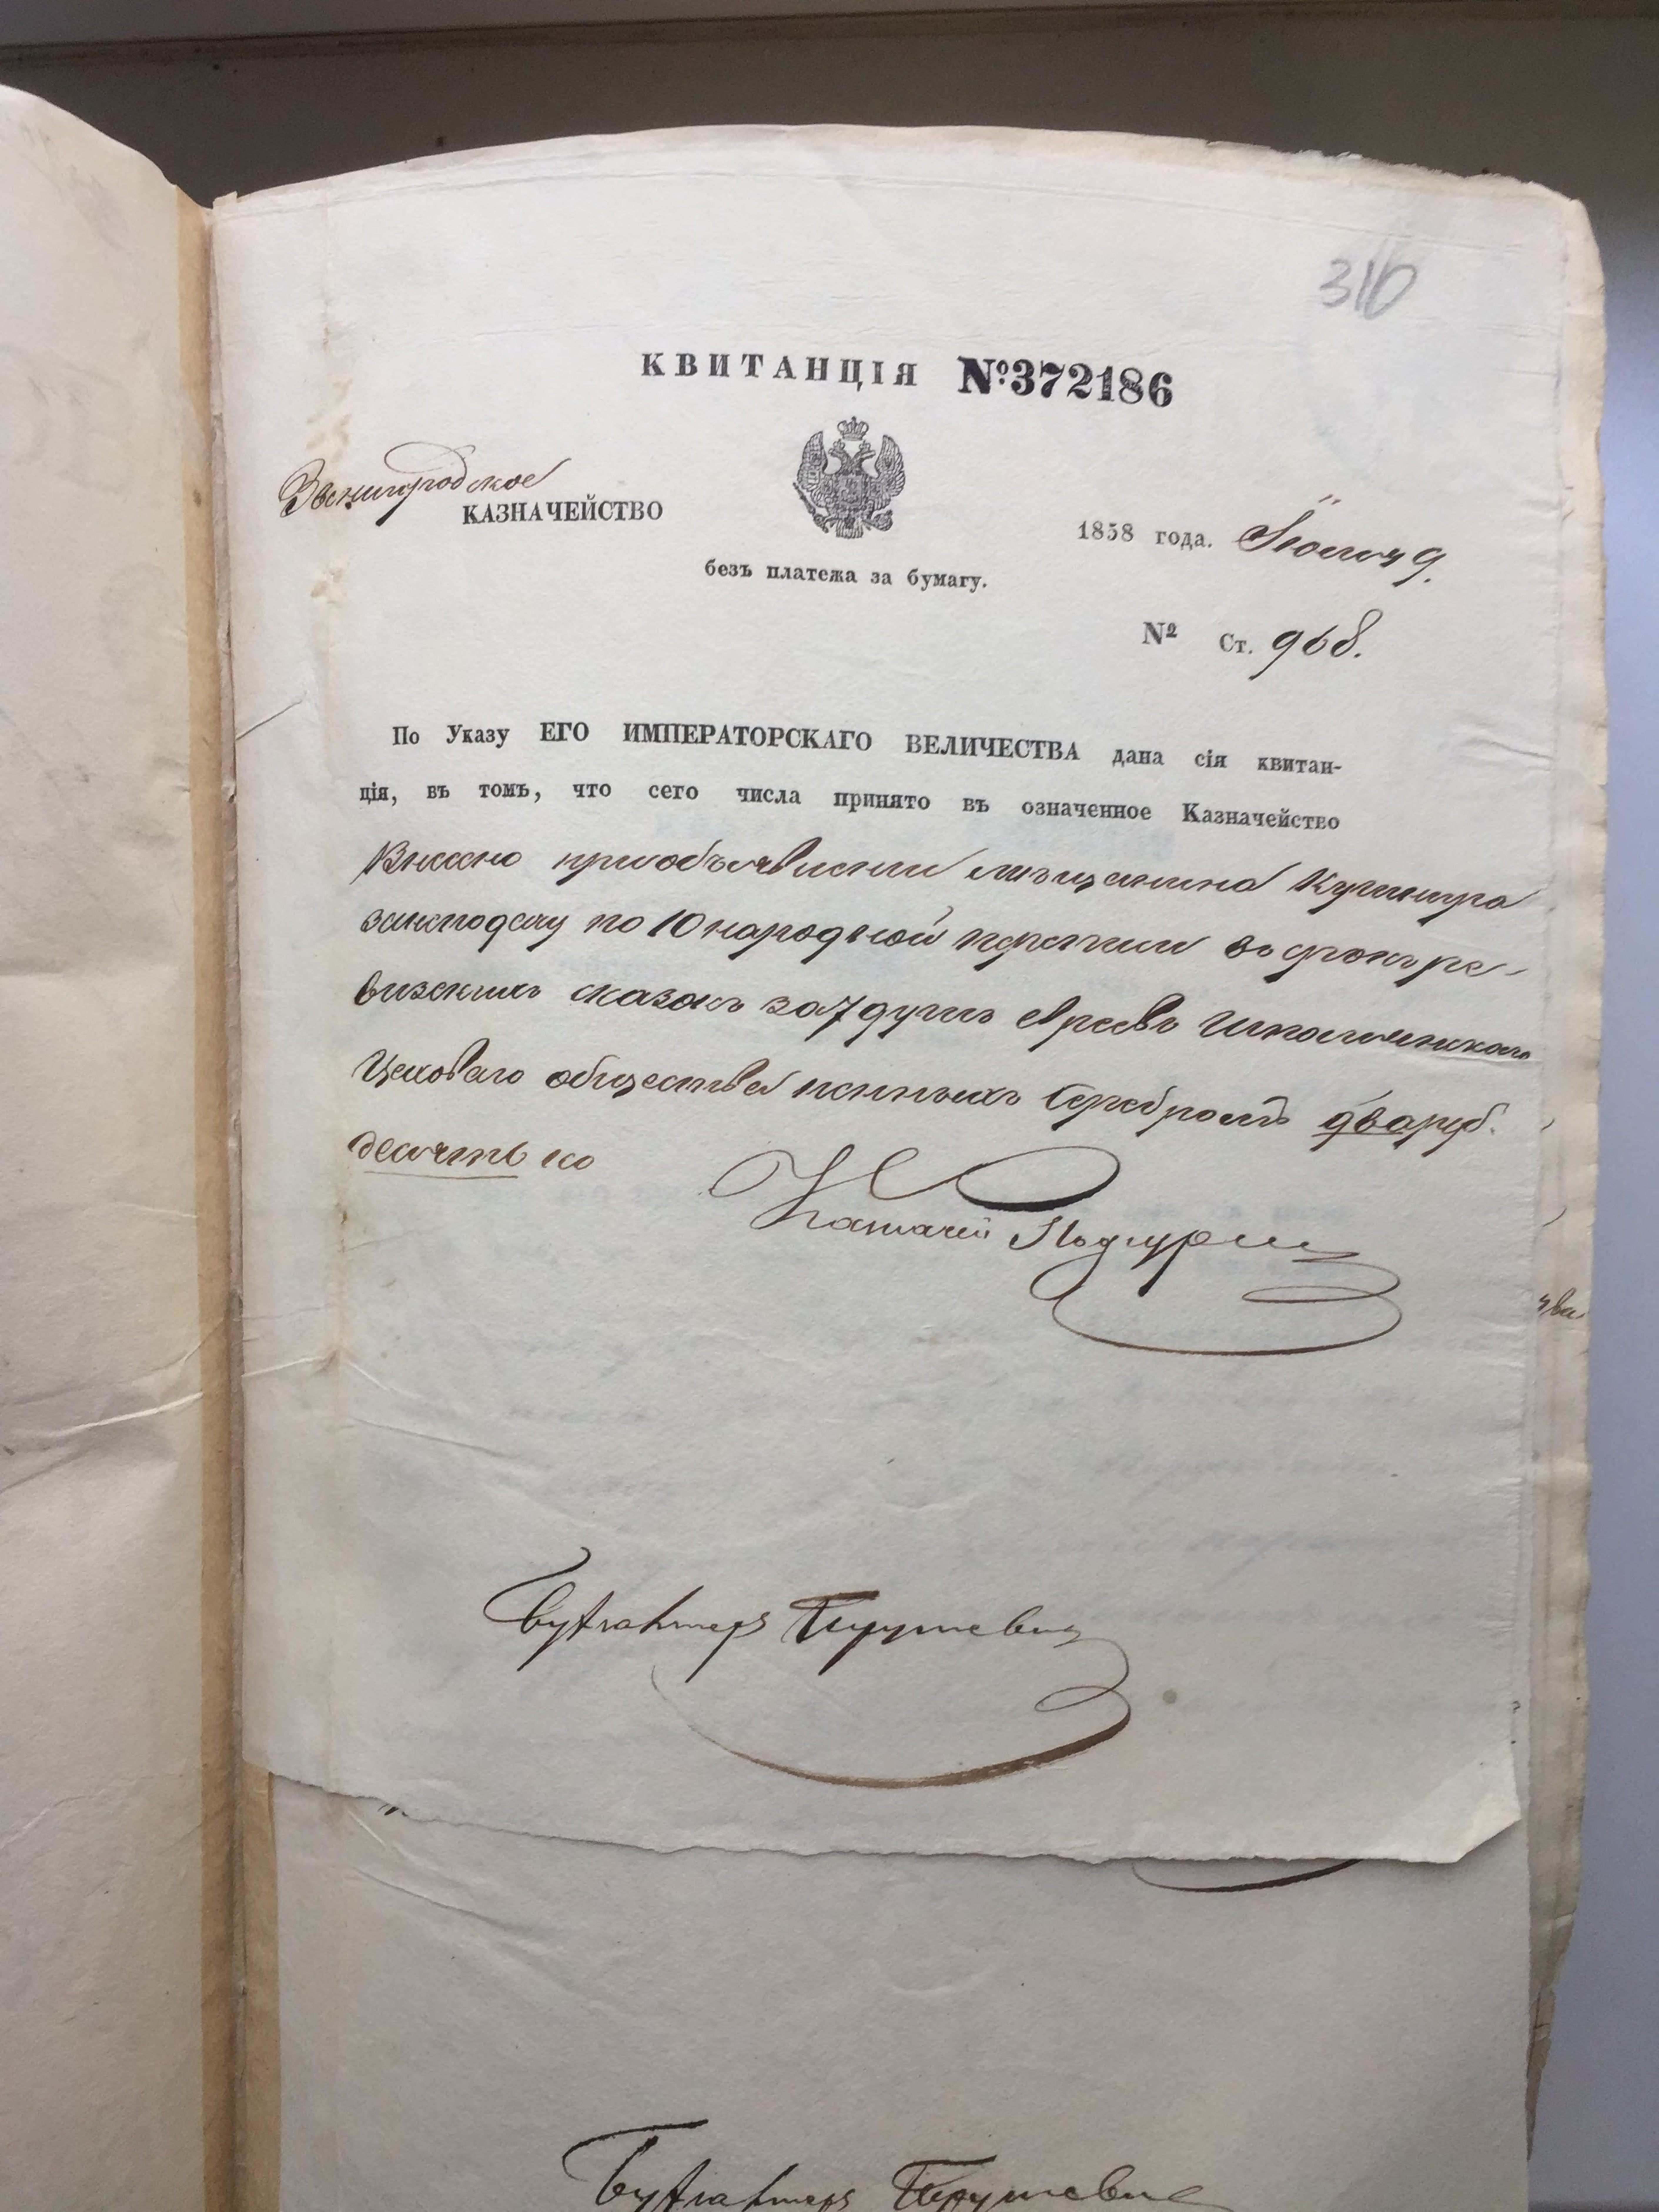 310
КВИТАНЦІЯ №372186
Звенигородское
КАЗНАЧЕЙСТВО
1858 года. Іюля 9.
безъ платежа за бумагу.
№ Ст. 968.
По Указу ЕГО ИМПЕРАТОРСКАГО ВЕЛИЧЕСТВА дана сія квитан-
ція, въ томъ, что сего числа принято въ означенное Казначейство
Внесено приобъявленіи мѣщанина Кушнира
по 10 народной переписи ре-
визскихъ сказокъ за 7 душъ евреевъ Шполянскаго
Цеховаго общества серебромъ два руб.
десять ко
Казначей
Бухгалтеръ
Бухгалтеръ